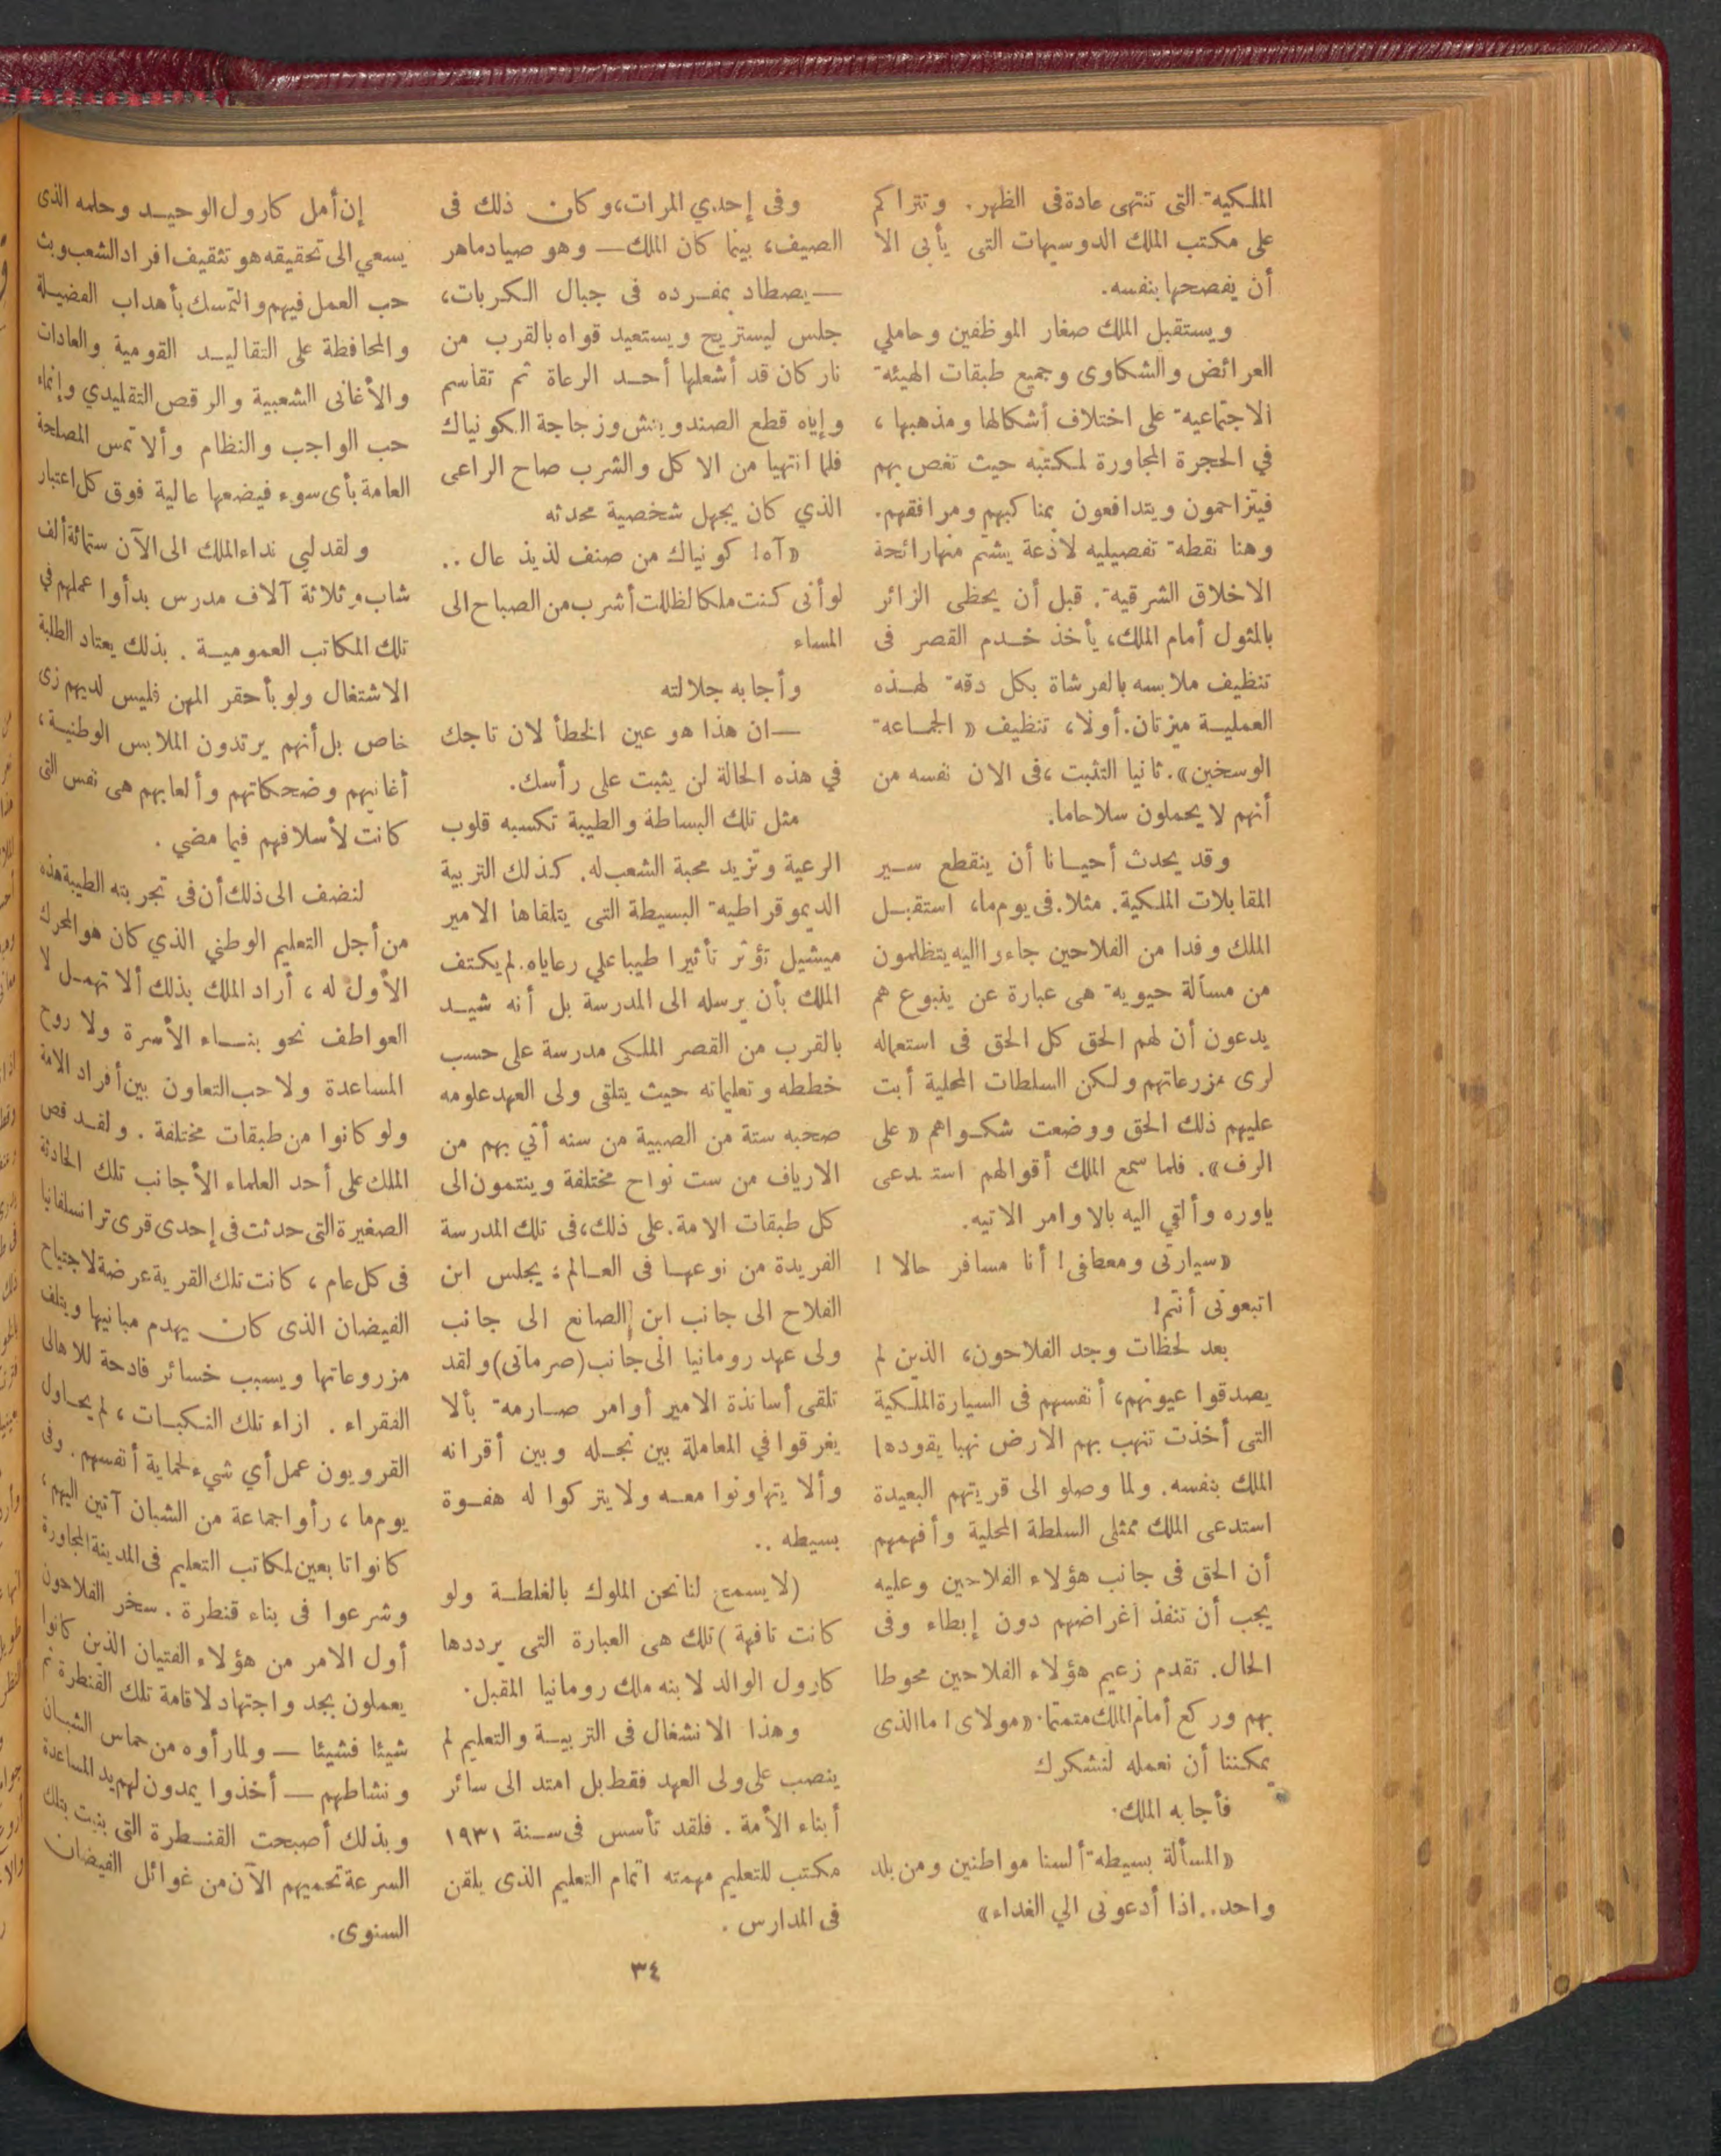 الملكية التى تنتهى عادة فى الظهر. وتتراكم
على مكتب الملك الدوسيهات التى يأبى الا
أن يفصحها بنفسه.
ويستقبل الملك صغار الموظفين وحاملي
العرائض والشكاوى وجميع طبقات الهيئة
الاجتماعية على اختلاف أشكالها ومذهبها ،
في الحجرة المجاورة لمكتبه حيث تغص بهم
فيتزاحمون ويتدافعون بمناكبهم ومرافقهم.
وهنا نقطة تفصيليه لاذعة يشتم منها رائحة
الاخلاق الشرقية. قبل أن يحظى الزائر
بالمثول أمام الملك، يأخذ خدم القصر فى
تنظيف ملابسه بالفرشاة بكل دقة لهذه
العملية ميزتان. أولا، تنظيف « الجماعة
الوسخين». ثانيا التثبت ،فى الان نفسه من
أنهم لا يحملون سلاحاما.
وقد يحدث أحيانا أن ينقطع سير
المقابلات الملكية. مثلا. فى يوم ما، استقبل
الملك وفدا من الفلاحين جاءوا اليه يتظلمون
من مسألة حيوية هى عبارة عن ينبوع هم
يدعون أن لهم الحق كل الحق فى استعماله
لرى مزرعاتهم ولكن السلطات المحلية أبت
عليهم ذلك الحق ووضعت شكواهم « على
الرف». فلما سمع الملك أقوالهم استدعى
ياوره وألقي اليه بالاوامر الاتيه.
«سيارتى ومعطافى! أنا مسافر حالا !
اتبعونى أنتم!
بعد لحظات وجد الفلاحون، الذين لم
يصدقوا عيونهم، أنفسهم فى السيارة الملكية
التى أخذت تنهب بهم الارض نهبا يقودها
الملك بنفسه. ولما وصلو الى قريتهم البعيدة
استدعى الملك ممثلى السلطة المحلية وأفهمهم
أن الحق فى جانب هؤلاء الفلاحين وعليه
يجب أن تنفذ أغراضهم دون إبطاء وفى
الحال. تقدم زعيم هؤلاء الفلاحين محوطا
بهم وركع أمام الملك متمتما: «مولاى! ما الذى
يمكننا أن نعمله لنشكرك
فأجابه الملك.
«المسألة بسيطة ألسنا مواطنين ومن بلد
واحد.. اذا أدعونى الي الغداء»
وفى إحدي المرات، وكان ذلك فى
الصيف، بينما كان الملك — وهو صياد ماهر
— يصطاد بمفرده فى جبال الكربات،
جلس ليستريح ويستعيد قواه بالقرب من
نار كان قد أشعلها أحد الرعاة ثم تقاسم
وإياه قطع الصندويتش وزجاجة الكونياك
فلما انتهيا من الاكل والشرب صاح الراعى
الذي كان يجهل شخصية محدثه
«آه! كونياك من صنف لذيذ عال ..
لو أنى كنت ملكا لظللت أشرب من الصباح الى
المساء
وأجابه جلالته
— ان هذا هو عين الخطأ لان تاجك
في هذه الحالة لن يثبت على رأسك.
مثل تلك البساطة والطيبة تكسبه قلوب
الرعية وتزيد محبة الشعب له. كذلك التربية
الديموقراطية البسيطة التى يتلقاها الامير
ميشيل تؤثر تأثيرا طيبا علي رعاياه. لم يكتف
الملك بأن يرسله الى المدرسة بل أنه شيد
بالقرب من القصر الملكى مدرسة على حسب
خططه وتعليماته حيث يتلقى ولى العهد علومه
صحبه ستة من الصبية من سنه أتي بهم من
الارياف من ست نواح مختلفة وينتمون الى
كل طبقات الامة. على ذلك، فى تلك المدرسة
الفريدة من نوعها فى العالم: يجلس ابن
الفلاح الى جانب ابن الصانع الى جانب
ولى عهد رومانيا الى جانب (صرمانى) ولقد
تلقى أساتذة الامير أوامر صارمة بألا
يغرقوا في المعاملة بين نجله وبين أقرانه
وألا يتهاونوا معه ولا يتركوا له هفوة
بسيطه ..
(لا يسمح لنا نحن الملوك بالغلطة ولو
كانت تافهة ) تلك هى العبارة التى يرددها
كارول الوالد لابنه ملك رومانيا المقبل.
وهذا الانشغال فى التربية والتعليم لم
ينصب على ولى العهد فقط بل امتد الى سائر
أبناء الأمة . فلقد تأسس فى سنة ١٩٣١
مكتب للتعليم مهمته اتمام التعليم الذى يلقن
فى المدارس .
إن أمل كارول الوحيد وحلمه الذى
يسعي الى تحقيقه هو تثقيف افراد الشعب وبث
حب العمل فيهم والتمسك بأهداب الفضيلة
والمحافظة على التقاليد القومية والعادات
والأغانى الشعبية والرقص التقليدي وإنماء
حب الواجب والنظام وألا تمس المصلحة
العامة بأى سوء فيضعها عالية فوق كل اعتبار
ولقد لبي نداء الملك الى الآن ستمائة ألف
شاب وثلاثة آلاف مدرس بدأوا عملهم في
تلك المكاتب العمومية . بذلك يعتاد الطلبة
الاشتغال ولو بأحقر المهن فليس لديهم زى
خاص بل أنهم يرتدون الملابس الوطنية ،
أغانيهم وضحكاتهم وألعابهم هى نفس التى
كانت لأسلافهم فيما مضي .
لنضف الى ذلك أن فى تجربته الطيبة هذه
من أجل التعليم الوطني الذي كان هو المحرك
الأول له ، أراد الملك بذلك ألا تهمل لا
العواطف نحو بناء الأسرة ولا روح
المساعدة ولا حب التعاون بين أفراد الامة
ولو كانوا من طبقات مختلفة . ولقد قص
الملك على أحد العلماء الأجانب تلك الحادثة
الصغيرة التى حدثت فى إحدى قرى ترانسلفانيا
فى كل عام ، كانت تلك القرية عرضة لاجتياح
الفيضان الذى كان يهدم مبانيها ويتلف
مزروعاتها ويسبب خسائر فادحة للاهالى
الفقراء . ازاء تلك النكبات ، لم يحاول
القرويون عمل أي شيء لحماية أنفسهم . وفى
يوم ما ، رأوا جماعة من الشبان آتين اليهم ،
كانوا تابعين لمكاتب التعليم فى المدينة المجاورة
وشرعوا فى بناء قنطرة . سخر الفلاحون
أول الامر من هؤلاء الفتيان الذين كانوا
يعملون بجد واجتهاد لاقامة تلك القنطرة ثم
شيئا فشيئا — ولما رأوه من حماس الشبان
ونشاطهم — أخذوا يمدون لهم يد المساعدة
وبذلك أصبحت القنطرة التى بنيت بتلك
السرعة تحميهم الآن من غوائل الفيضان
السنوى.
٣٤